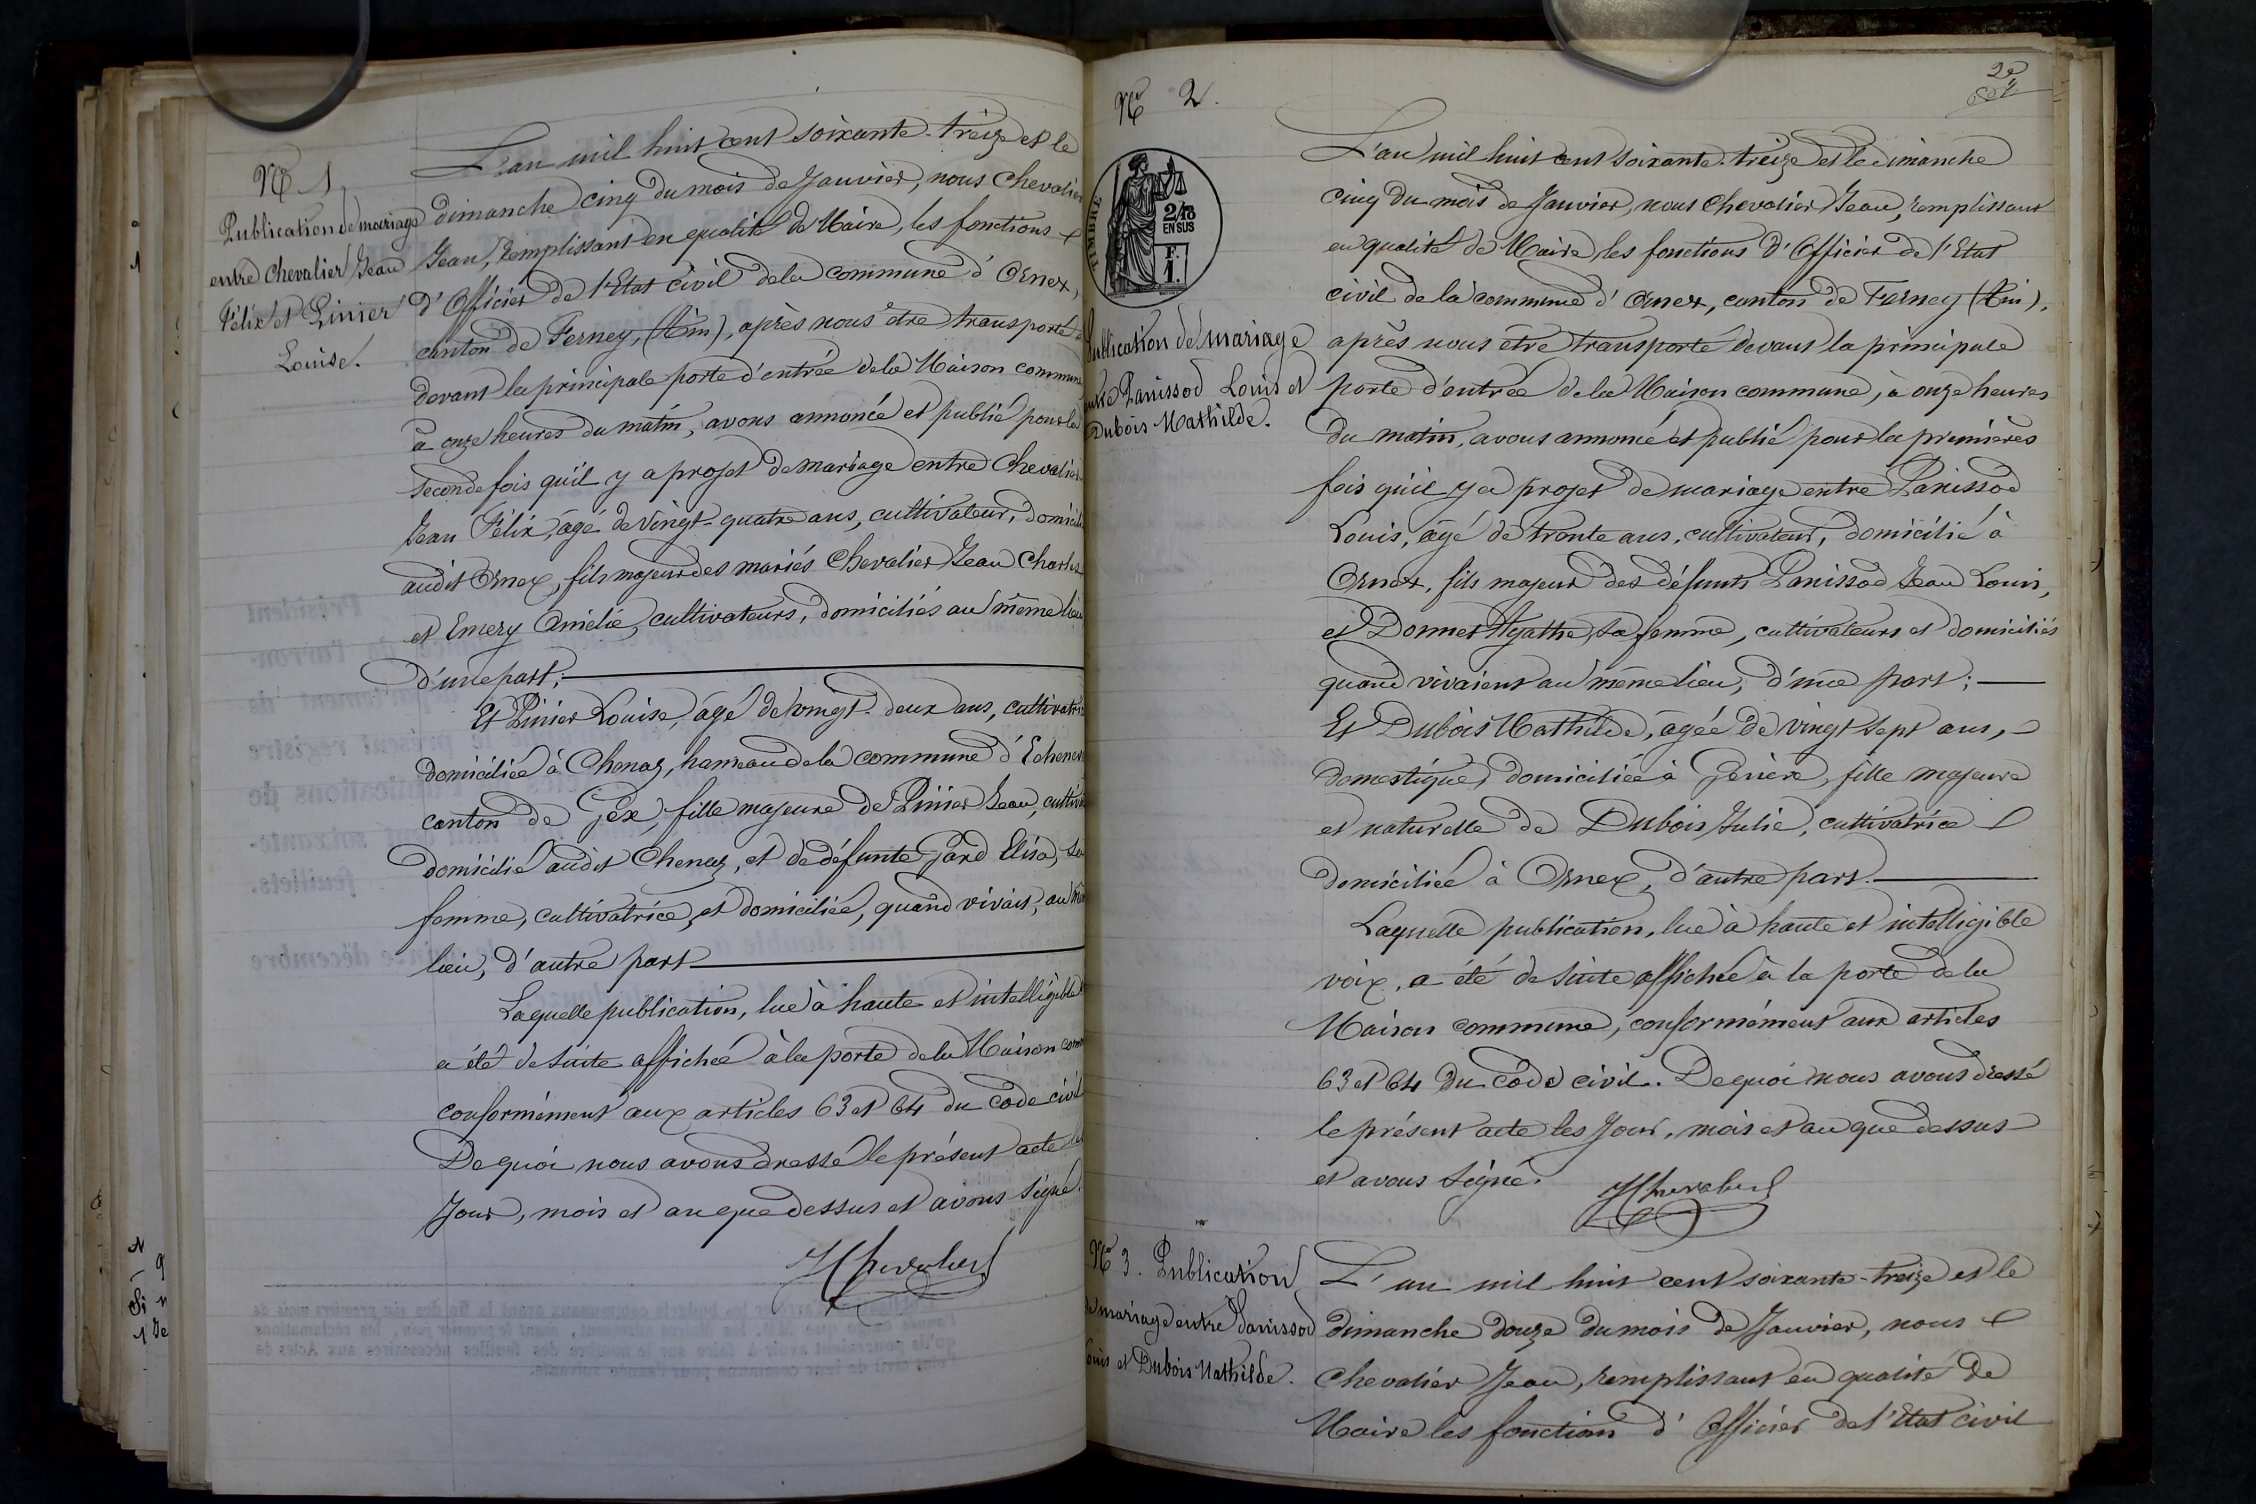 N° 1
Publication de mariage
entre Chevalier Jean
Félix et Pinier
Louise.
L'an mil huit cent soixante-treize et le
dimanche cinq du mois de Janvier, nous Chevalier
Jean, remplissant en qualité de Maire, les fonctions
d'Officier de l'Etat civil de la commune d'Ornex,
canton de Ferney, (Ain), après nous être transporté
devant la principale porte d'entrée de la Maison commune
à onze heures du matin, avons annoncé et publié pour la
seconde fois qu'il y a projet de mariage entre Chevalier
Jean Félix, âgé de vingt-quatre ans, cultivateur, domicilié
audit Ornex, fils majeur des mariés Chevalier Jean Charles
et Emery Amélie, cultivateurs, domiciliés au même lieu
d'une part;
Et Pinier Louise, âgé de vingt-deux ans, cultivatri
domiciliée à Chenaz, hameau de la commune d'Echenev
canton de Gex, fille majeure de Pinier Jean, cultiva
domicilié audit Chenaz, et de défunte Gard Elisa, sa
femme, cultivatrice, et domiciliée, quand vivait, au
lieu, d'autre part
Laquelle publication, lue à haute et intelligible
a été de suite affichée à la porte de la Maison com
conformément aux articles 63 et 64 du Code civil
De quoi nous avons dressé le présent acte les
Jour, mois et an que dessus et avons signé.
JChevalier
N° 2.
2e
TIMBRE
2/10
EN SUS
F.
1.
Publication de mariage
entre Panissod Louis et
Dubois Mathilde.
L'an mil huit cent soixante-treize et le dimanche
cinq du mois de Janvier, nous Chevalier Jean, remplissant
en qualité de Maire, les fonctions d'Officier de l'Etat
civil de la commune d'Ornex, canton de Ferney (Ain),
après nous être transporté devant la principale
porte d'entrée de la Maison commune, à onze heures
du matin, avons annoncé et publié pour la première
fois qu'il y a projet de mariage entre Panissod
Louis, âgé de trente ans, cultivateur, domicilié à
Ornex, fils majeur des défunts Panissod Jean Louis,
et Donnet Agathe, sa femme, cultivateurs et domiciliés
quand vivaient au même lieu, d'une part;
Et Dubois Mathilde, âgée de vingt sept ans,
domestique, domiciliée à Genève, fille majeure
et naturelle de Dubois Julie, cultivatrice
domiciliée à Ornex, d'autre part.
Laquelle publication, lue à haute et intelligible
voix, a été de suite affichée à la porte de la
Maison commune, conformément aux articles
63 et 64 du Code civil. De quoi nous avons dressé
le présent acte les Jour, mois et an que dessus
et avons signé.
JChevalier
N° 3. Publication
de mariage entre Panissod
Louis et Dubois Mathilde.
L'an mil huit cent soixante-treize et le
dimanche douze du mois de Janvier, nous
Chevalier Jean, remplissant en qualité de
Maire les fonctions d'Officier de l'Etat civil